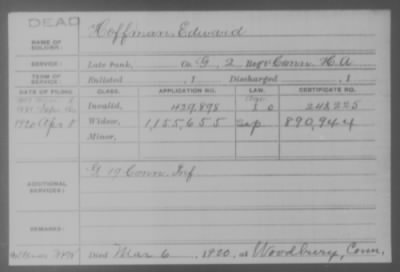 DEAD
NAME OF SOLDIER: Hoffman, Edward
SERVICE: Late rank, Co. G, 2 Reg't Conn. H. A.
TERM OF SERVICE: Enlisted , 1 Discharged , 1
DATE OF FILING. CLASS. APPLICATION NO. LAW. CERTIFICATE NO.
Invalid, 429,898 248,225
1920 Apr 8 Widow, 1,155,655 890,944
Minor,
ADDITIONAL SERVICES: G 19 Conn. Inf
REMARKS:
Died Mar 6, 1920, at Woodbury, Conn.